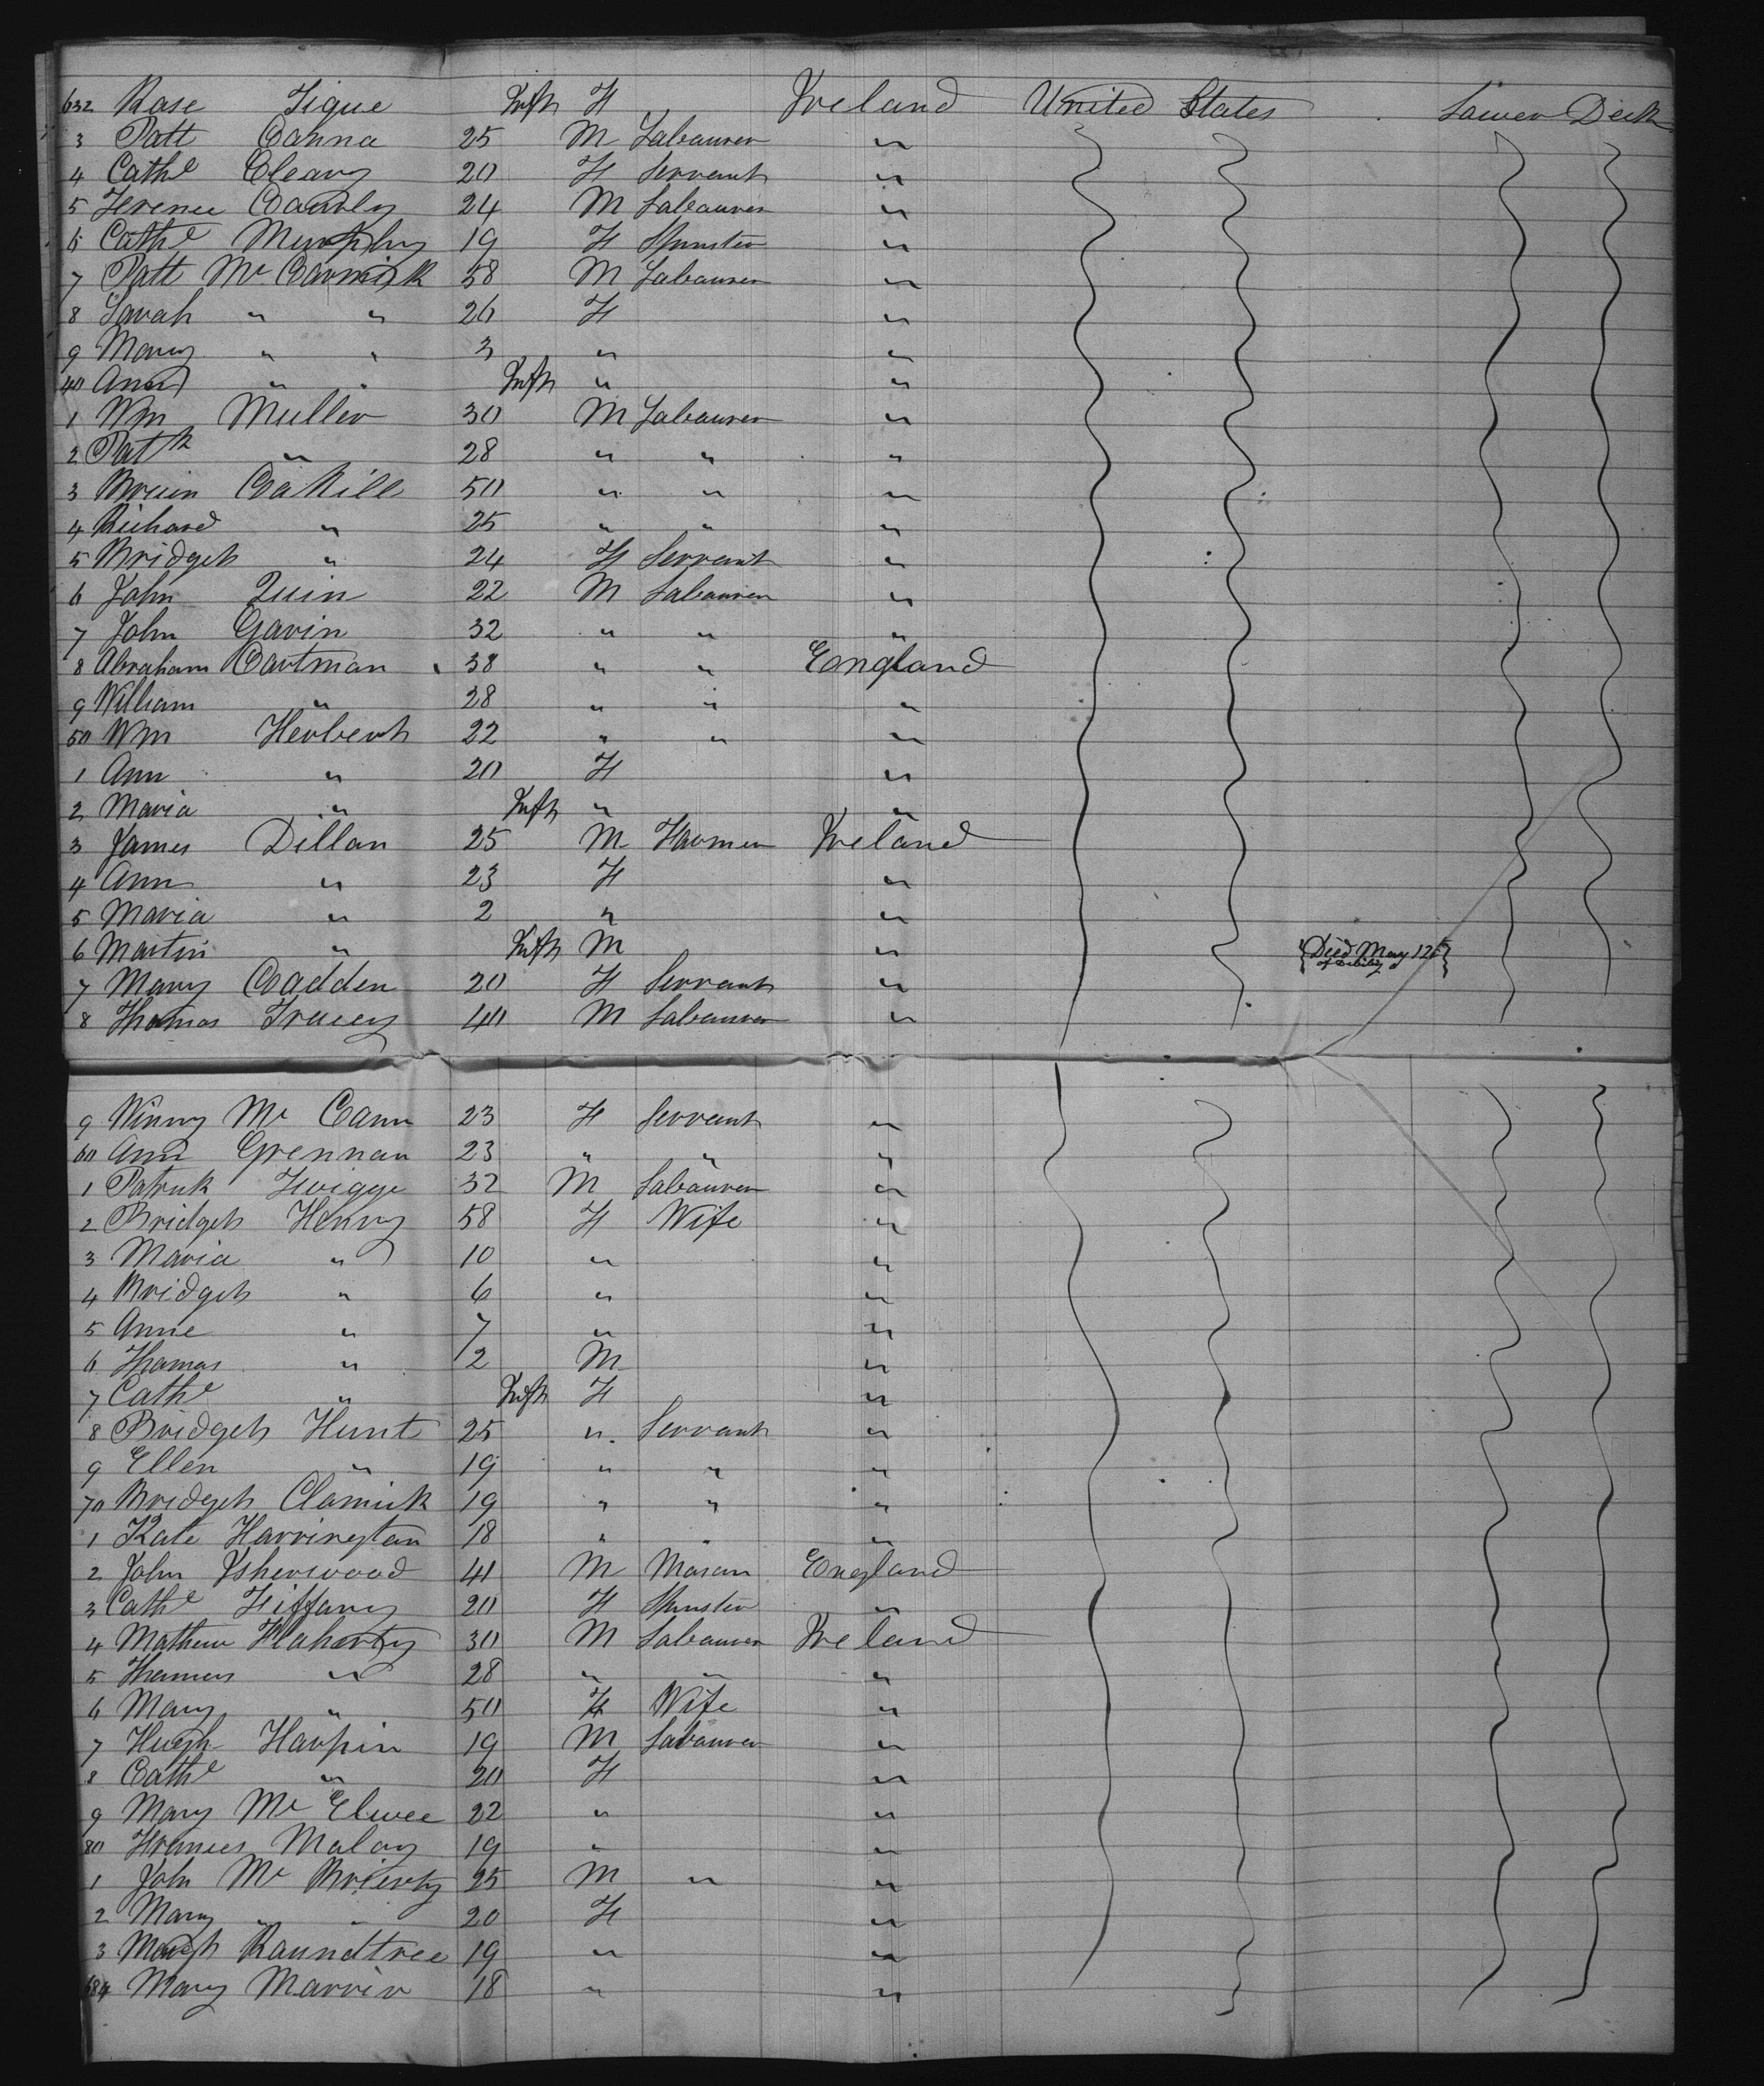 632 Rose Tigue Inft F Ireland United States Lower Deck
3 Patt Canna 25 M Labourer "
4 Cathe Cleary 20 F Servant "
5 Terence Cauvly 24 M Labourer "
6 Cathe Murphy 19 F Spinster "
7 Patt Mc Cormick 58 M Labourer "
8 Sarah " " 26 F "
9 Mary " " 3 " "
40 Ann " " Inft " "
1 Wm Muller 30 M Labourer "
2 Patk " 28 " " "
3 Brien Cahill 50 " " "
4 Richard " 25 " " "
5 Bridget " 24 F Servant "
6 John Quin 22 M Labourer "
7 John Gavin 32 " " "
8 Abraham Cartman 38 " " England
9 William " 28 " " "
50 Wm Herbert 22 " " "
1 Ann " 20 F "
2 Maria " Inft " "
3 James Dillon 25 M Farmer Ireland
4 Ann " 23 F "
5 Maria " 2 " "
6 Martin " Inft M " {Died May 12th of Debility}
7 Mary Cadden 20 F Servant "
8 Thomas Tracey 40 M Labourer "
9 Winny Mc Cann 23 F Servant "
60 Ann Grennan 23 " " "
1 Patrick Twigge 32 M Labourer "
2 Bridget Henry 58 F Wife "
3 Maria " 10 " "
4 Bridget " 6 " "
5 Anne " 7 " "
6 Thomas " 2 M "
7 Cathe " Inft F "
8 Bridget Hunt 25 " Servant "
9 Ellen " 19 " " "
70 Bridget Clamick 19 " " "
1 Kate Harrington 18 " " "
2 John Isherwood 41 M Mason England
3 Cathe Tiffany 20 F Spinster "
4 Mathew Flaherty 30 M Labourer Ireland
5 Thomas " 28 " " "
6 Mary " 50 F Wife "
7 Hugh Harpin 19 M Labourer "
8 Cathe " 20 F "
9 Mary Mc Elwee 22 " "
80 Frances Maloy 19 " "
1 John Mc Brierty 25 M " "
2 Mary " " 20 F "
3 Roundtree 19 " "
684 Mary Marrir 18 " "